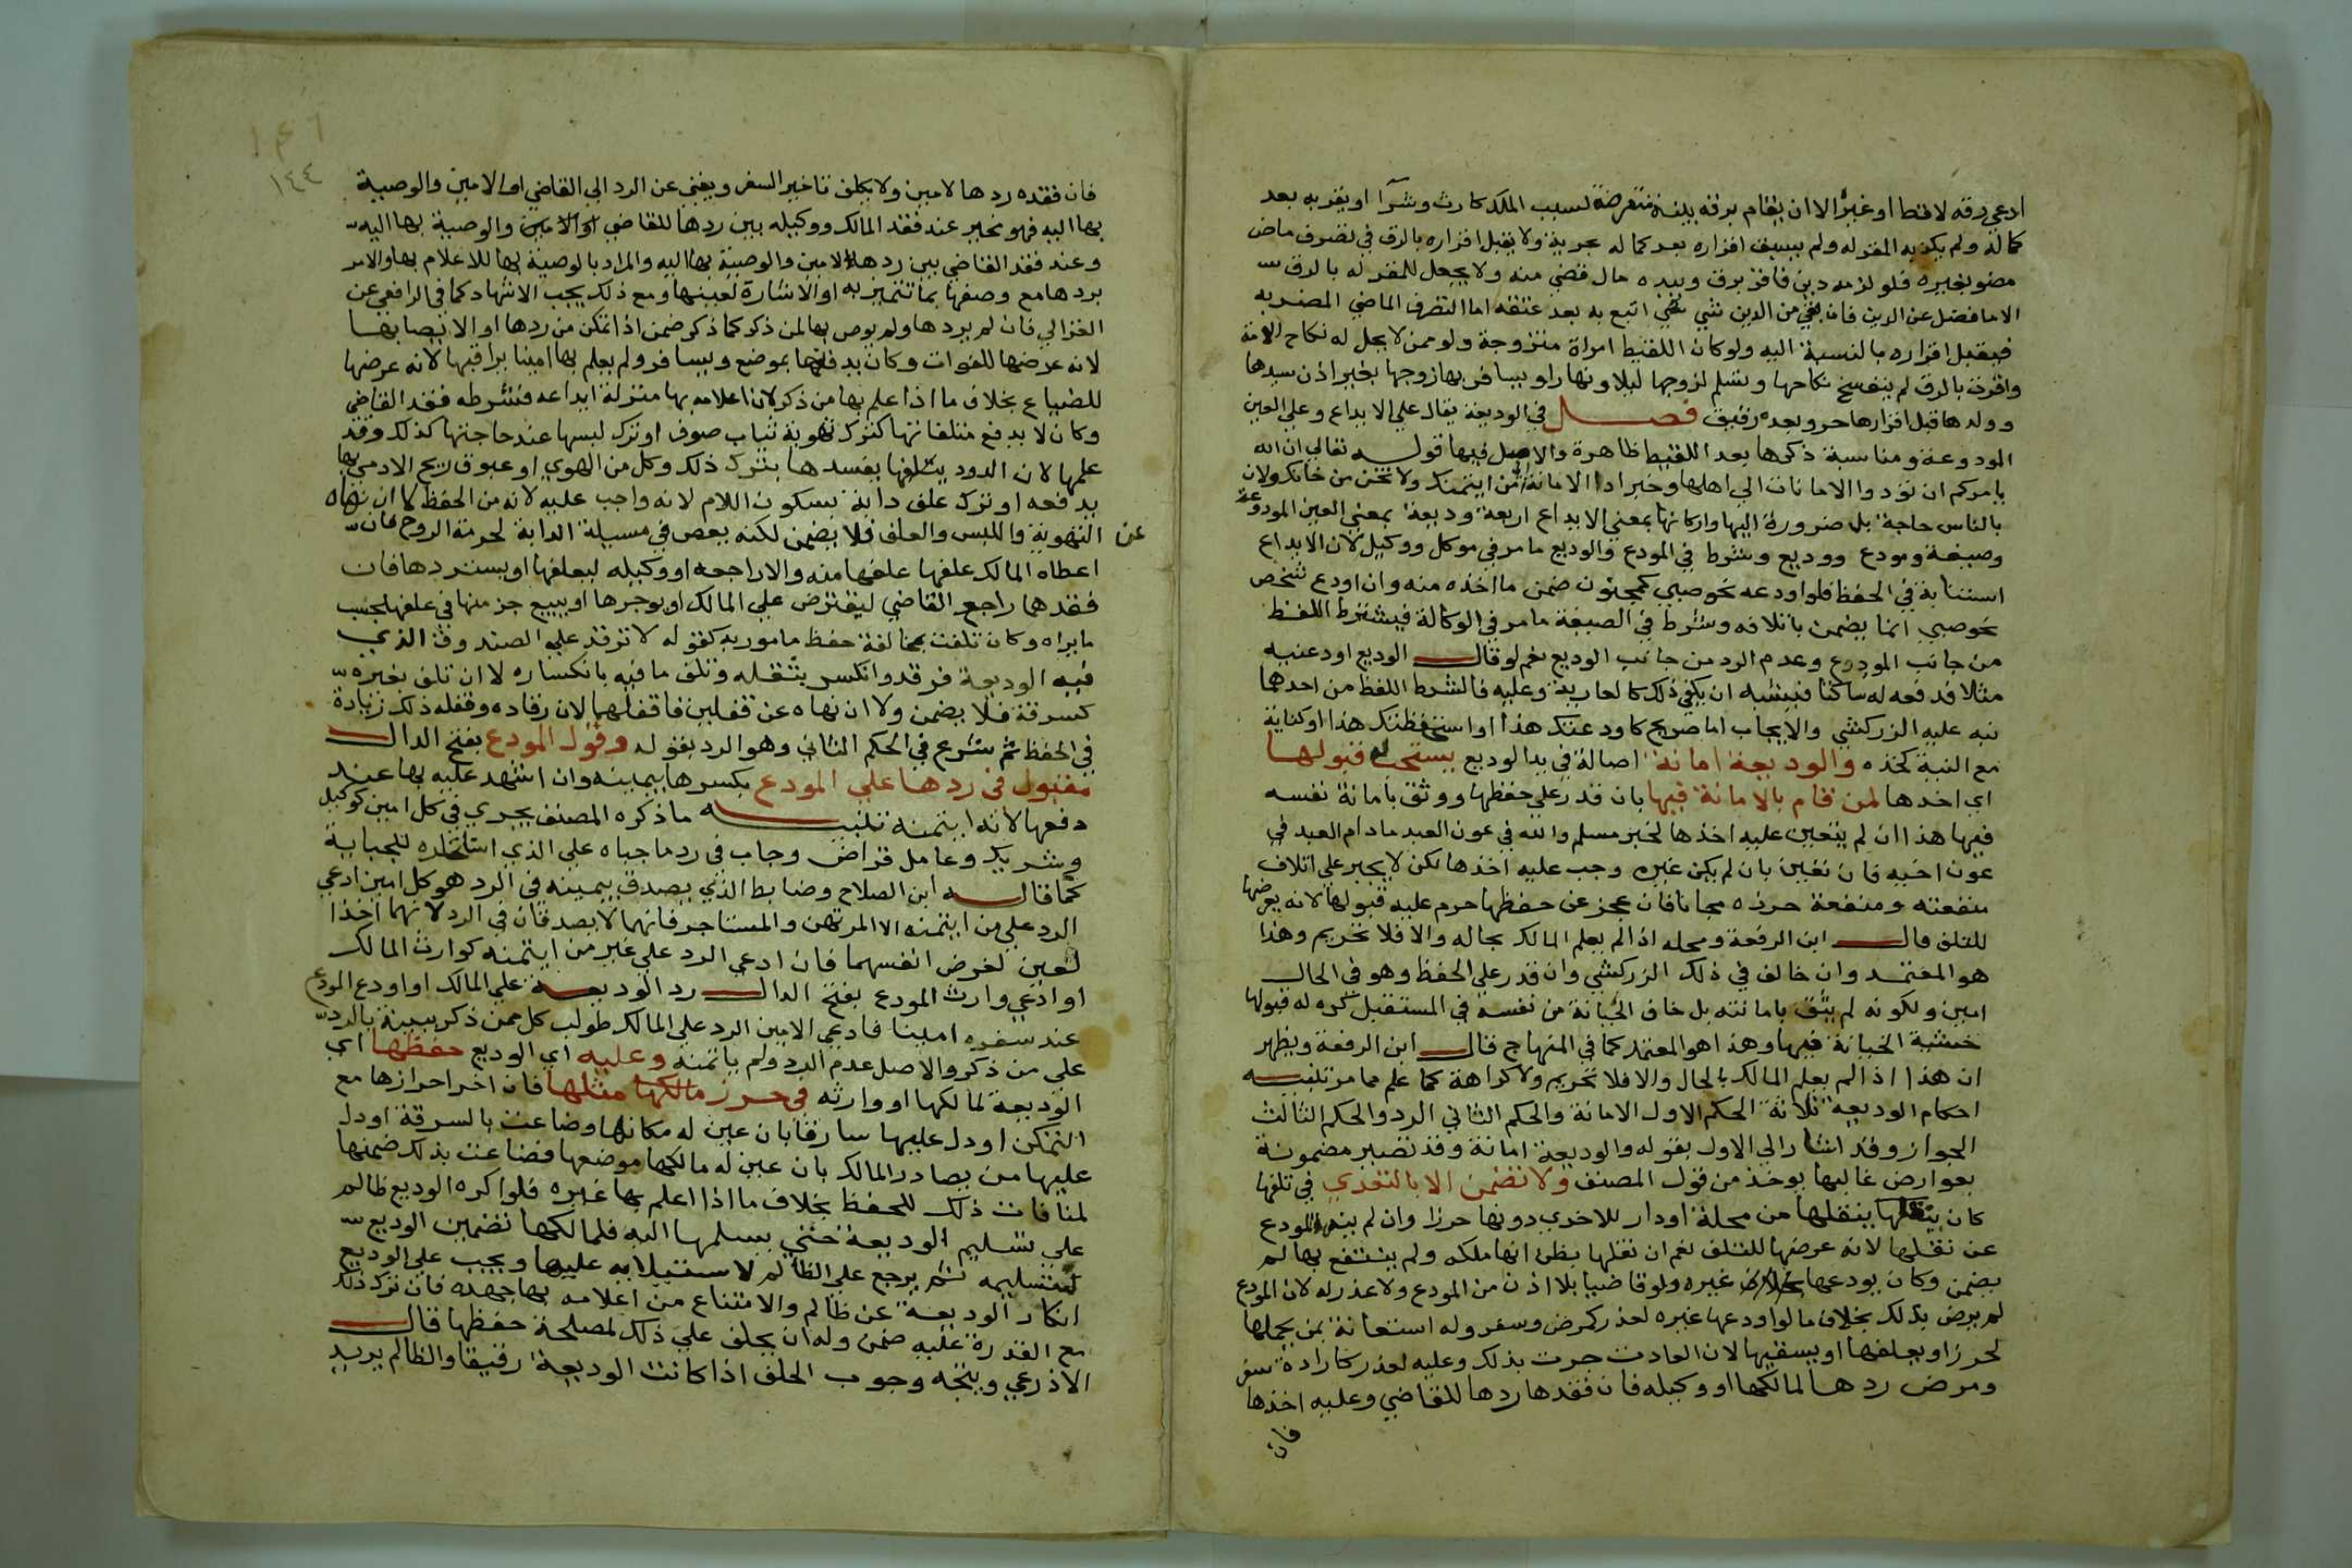 ادعي رقه لاقط او غيره الا ان يقام برقه بينة متعرضة لسبب الملك كارث وشرآ او يقر به بعد
كماله ولم يكذبه المقر له ولم يسبق اقراره بعد كماله بحرية ولا يقبل اقراره بالرق في تصرف ماض
مضر بغيره فلو لزمه دين فاقر برق وبيده مال قضي منه ولا يجعل للمقر له بالرق
الا ما فضل عن الدين فان بقي من الدين شي اتبع به بعد عتقه اما التصرف الماضي المضر به
فيقبل اقراره بالنسبة اليه ولو كان اللقيط امراة متزوجة ولو ممن لا يحل له نكاح الامة
واقرت بالرق لم ينفسخ نكاحها وتسلم لزوجها ليلا ونهارا ويسافر بها زوجها بغير اذن سيدها
وولدها قبل اقرارها حر وبعده رقيق فصل في الوديعة يقال علي الايداع وعلي العين
المودوعة ومناسبة ذكرها بعد اللقيط ظاهرة والاصل فيها قوله تعالي ان الله
يامركم ان تؤدوا الامانات الي اهلها وخبر اد الامانة الي من ايتمنك ولا تخن من خانك ولان
بالناس حاجة بل ضرورة اليها واركانها بمعني الايداع اربعة وديعة بمعني العين المودوعة
وصيغة ومودع ووديع وشرط في المودع والوديع ما مر في موكل ووكيل لان الايداع
استنابة في الحفظ فلو اودعه نحو صبي كمجنون ضمن ما اخذه منه وان اودع شخص
نحو صبي انما يضمن باتلافه وشرط في الصيغة ما مر في الوكالة فيشترط اللفظ
من جانب المودع وعدم الرد من جانب الوديع نعم لو قال الوديع اودعنيه
مثلا فدفعه له ساكتا فيشبه ان يكفي ذلك كالعارية وعليه فالشرط اللفظ من احدهما
نبه عليه الزركشي والايجاب اما صريح كاودعتك هذا او استحفظتك هذا او كناية
مع النية كخذه والوديعة امانة اصالة في يد الوديع يستحب قبولها
اي اخدها لمن قام بالامانة فيها بان قدر علي حفظها ووثق بامانة نفسه
فيها هذا ان لم يتعين عليه اخذها لخبر مسلم والله في عون العبد ما دام العبد في
عون اخيه فان تعين بان لم يكن غيره وجب عليه اخذها لكن لا يجبر علي اتلاف
منفعته ومنفعة حرزه مجانا فان عجز عن حفظها حرم عليه قبولها لانه يعرضها
للتلف قال ابن الرفعة ومحله اذا لم يعلم المالك بحاله والا فلا تحريم وهذا
هو المعتمد وان خالف في ذلك الزركشي وان قدر علي الحفظ وهو في الحال
امين ولكونه لم يثق بامانته بل خاف الخيانة من نفسه في المستقبل كره له قبولها
خشية الخيانة فيها وهذا هو المعتمد كما في المنهاج قال ابن الرفعة ويظهر
ان هذا اذا لم يعلم المالك بالحال والا فلا تحريم ولا كراهة كما علم مما مر تنبيه
احكام الوديعة ثلاثة الحكم الاول الامانة والحكم الثاني الرد والحكم الثالث
الجواز وقد اشار الي الاول بقوله والوديعة امانة وقد تصير مضمونة
بعوارض غالبها يوخذ من قول المصنف ولا تضمن الا بالتعدي في تلفها
كان ينقلها من محلة او دار للاخري دونها حرزا وان لم ينهه المودع
عن نقلها لانه عرضها للتلف نعم ان نقلها يظن انها ملكه ولم ينتفع بها لم
يضمن وكان يودعها غيره ولو قاضيا بلا اذن من المودع ولا عذر له لان المودع
لم يرض بذلك بخلاف ما لو اودعها غيره لعذر كمرض وسفر وله استعانة بمن يحملها
لحرز او يعلفها او يسقيها لان العادت جرت بذلك وعليه لعذر كارادة سفر
ومرض ردها لمالكها او وكيله فان فقدها ردها للقاضي وعليه اخذها
فان
١٤٤
فان فقده ردها لامين ولا يكلف تاخير السفر ويغني عن الرد الي القاضي او الامين والوصية
بها اليه فهو مخير عند فقد المالك ووكيله بين ردها للقاضي او الامين والوصية بها اليه
وعند فقد القاضي بين ردها للامين والوصية بها اليه والمراد بالوصية بها الاعلام بها والامر
بردها مع وصفها بما تتميز به او الاشارة لعينها ومع ذلك يجب الاشهاد كما في الرافعي عن
الغزالي فان لم يردها ولم يوص بها لمن ذكر كما ذكر ضمن اذا تمكن من ردها او الايصا بها
لانه عرضها للفوات وكان يدفنها بموضع ويسافر ولم يعلم بها امينا يراقبها لانه عرضها
للضياع بخلاف ما اذا علم بها من ذكر لان اعلامه بها منزلة ايداعه فشرطه فقد القاضي
وكان لا يدفع متلفاتها كترك تهوية ثياب صوف او ترك لبسها عند حاجتها كذلك وقد
علمها لان الدود يتلفها يفسدها بترك ذلك وكل من الهوي او عبوق ريح الادمي بها
يدفعه او ترك علف دابة بسكون اللام لانه واجب عليه لانه من الحفظ لا ان نهاه
عن التهوية واللبس والعلف فلا يضمن لكنه يعص في مسيلة الدابة لحرمة الروح فان
اعطاه المالك علفها علفها منه والا راجعه او وكيله ليعلفها او يستردها فان
فقدهما راجع القاضي ليقترض علي المالك او يوجرها او يبيع جز منها في علفها بحسب
ما يراه وكان تلفت بمخالفة حفظ مامور به كقوله لا ترقد علي الصندوق الذي
فيه الوديعة فرقد وانكسر بثقله وتلف ما فيه بانكساره لا ان تلف بغيره
كسرقة فلا يضمن ولا ان نهاه عن قفلين فاقفلهما لان رقاده وقفله ذلك زيادة
في الحفظ ثم شرع في الحكم الثاني وهو الرد بقوله وقول المودع بفتح الدال
مقبول في ردها علي المودع بكسرها بيمينه وان اشهد عليه بها عند
دفعها لانه ايتمنه تنبيه ما ذكره المصنف يجري في كل امين كوكيل
وشريك وعامل قراض وجاب في رد ما جباه علي الذي استاجره للجباية
كما قاله ابن الصلاح وضابط الذي يصدق بيمينه في الرد هو كل امين ادعي
الرد علي من ايتمنه الا المرتهن والمستاجر فانهما لا يصدقان في الرد لانهما اخذا
لعين لغرض انفسهما فان ادعي الرد علي غير من ايتمنه كوارث المالك
او ادعي وارث المودع بفتح الدال رد الوديعة علي المالك او اودع المودع
عند سفره امينا فادعي الامين الرد علي المالك طولب كل ممن ذكر ببينة بالرد
علي من ذكر والاصل عدم الرد ولم ياتمنه وعليه اي الوديع حفظها اي
الوديعة لمالكها او وارثه في حرز مالكها مثلها فان اخر احرازها مع
التمكن او دل عليها سارقا بان عين له مكانها وضاعت بالسرقة او دل
عليها من يصادر المالك بان عين له مالكها موضعها فضاعت بذلك ضمنها
لمنافات ذلك للحفظ بخلاف ما اذا اعلم بها غيره فلو اكره الوديع ظالم
علي تسليم الوديعة حتي يسلمها اليه فلمالكها تضمين الوديع
لتسليمه ثم يرجع علي الظالم لاستيلايه عليها ويجب علي الوديع
انكار الوديعة عن ظالم والامتناع من اعلامه بها جهده فان ترك ذلك
مع القدرة عليه ضمن وله ان يحلف علي ذلك لمصلحة حفظها قال
الاذرعي ويتجه وجوب الحلف اذا كانت الوديعة رقيقا والظالم يريد